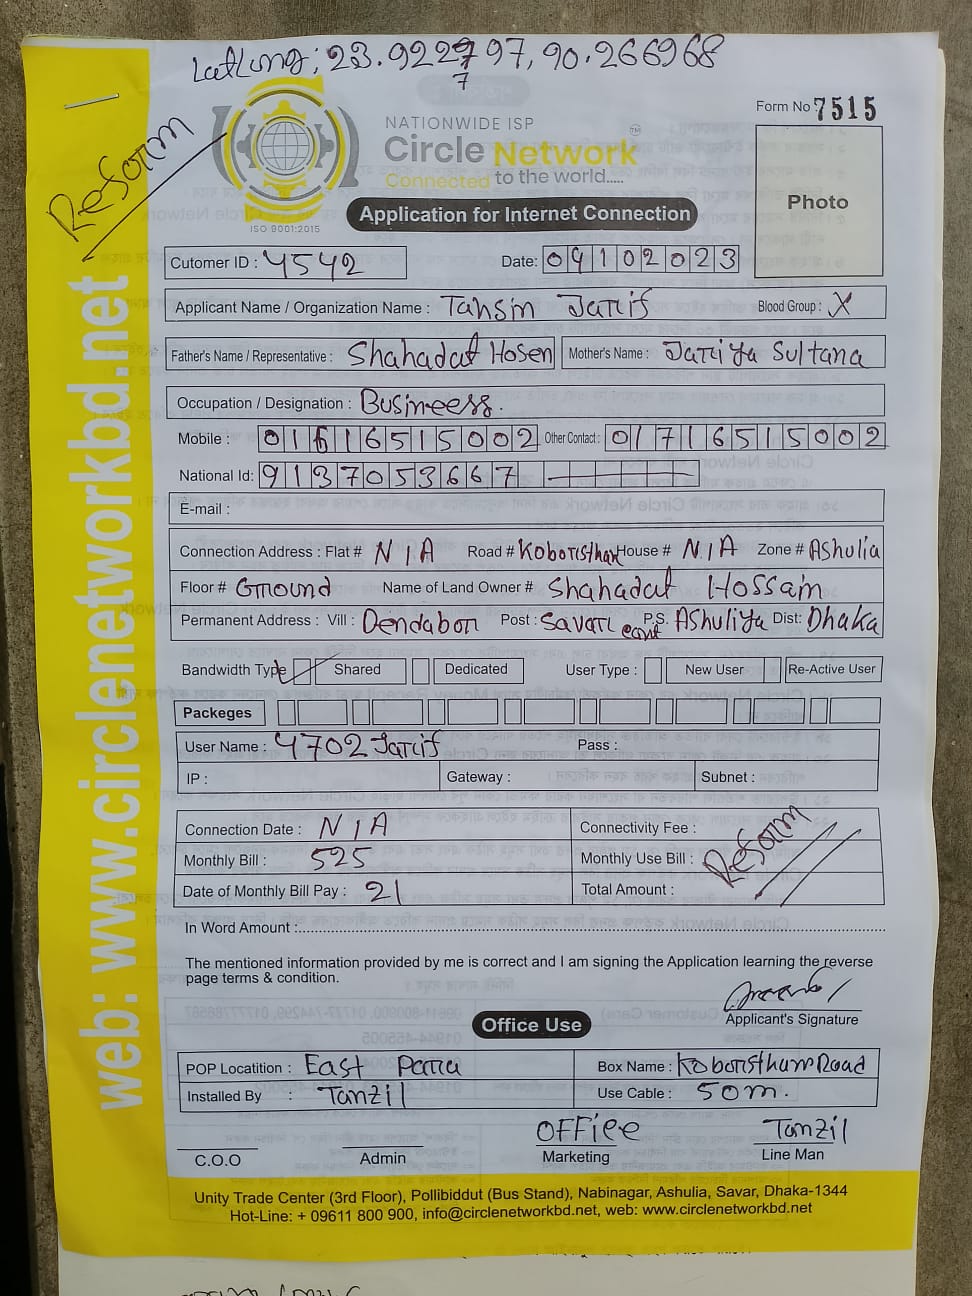 LatLong; 23.922797, 90.266968
7
Reform
Form No 7515
NATIONWIDE ISP
Circle Network
TM
Connected to the world.....
ISO 9001:2015
Application for Internet Connection
Photo
Cutomer ID : 4542 Date: 04102023
Applicant Name / Organization Name : Tahsin Jarif Blood Group : X
Father's Name / Representative : Shahadat Hosen Mother's Name : Jariya Sultana
Occupation / Designation : Busineess.
Mobile : 01616515002 Other Contact : 01716515002
National Id: 9137053667
E-mail :
Connection Address : Flat # N/A Road # Koboristhan House # N/A Zone # Ashulia
Floor # Ground Name of Land Owner # Shahadat Hossain
Permanent Address : Vill : Dendabor Post : Savar cant P.S. Ashuliya Dist: Dhaka
Bandwidth Type Shared Dedicated User Type : New User Re-Active User
Packeges
User Name : 4702 Jarif Pass :
IP : Gateway : Subnet :
Connection Date : N/A Connectivity Fee :
Monthly Bill : 525 Monthly Use Bill : Reform
Date of Monthly Bill Pay : 21 Total Amount :
In Word Amount :
The mentioned information provided by me is correct and I am signing the Application learning the reverse
page terms & condition.
Applicant's Signature
Office Use
POP Locatition : East Para Box Name : Koboristhan Road
Installed By : Tanzil Use Cable : 50m.
OFFiee Tanzil
C.O.O Admin Marketing Line Man
Unity Trade Center (3rd Floor), Pollibiddut (Bus Stand), Nabinagar, Ashulia, Savar, Dhaka-1344
Hot-Line: + 09611 800 900, info@circlenetworkbd.net, web: www.circlenetworkbd.net
web: www.circlenetworkbd.net